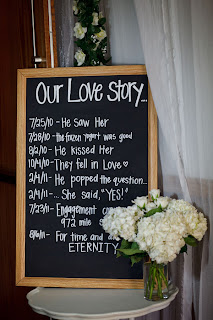 Our Love Story...
7/25/10 - He Saw Her
7/28/10 - the frozen yogurt was good
8/2/10 - He kissed Her
10/4/10 - They fell in Love ♡
2/4/11 - He popped the question...
2/4/11 - ... She said, "YES!"
7/23/11 - Engagement
972 mile
- For time and
ETERNITY